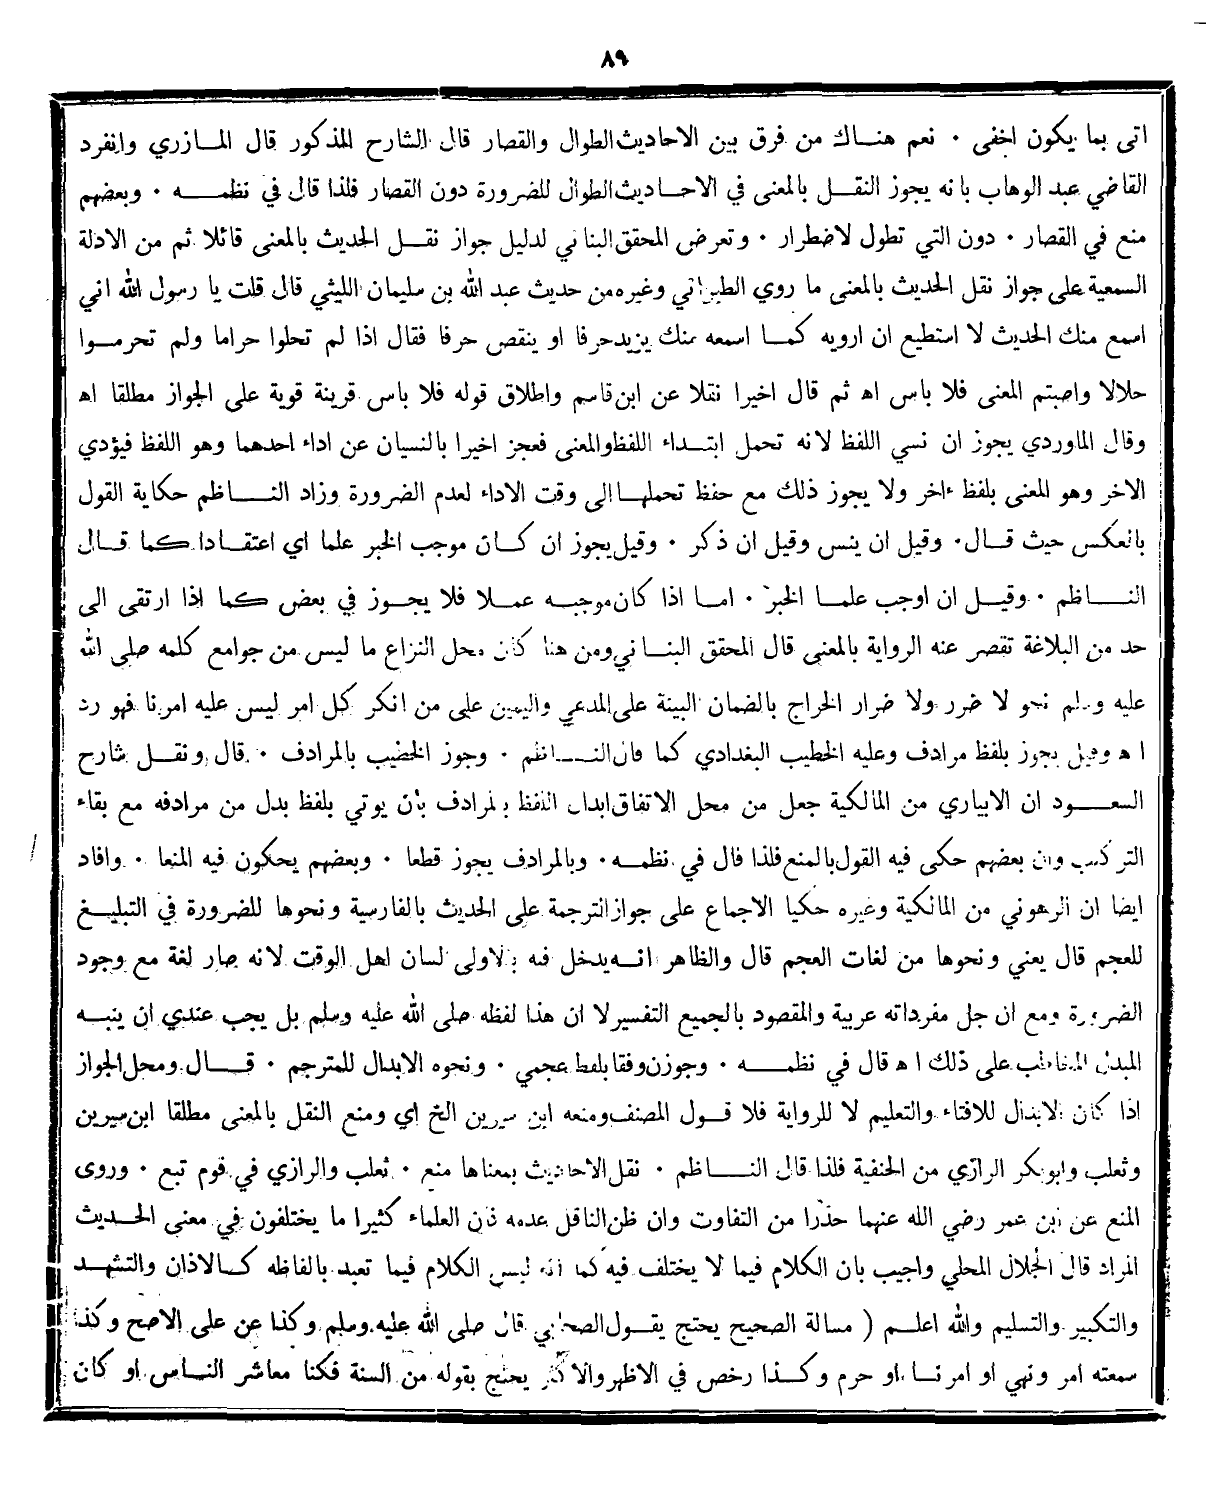 ٨٩
اتى بما يكون اخفى ٠ نعم هناك من فرق بين الاحاديث الطوال والقصار قال الشارح المذكور قال المازري وانفرد
القاضي عبد الوهاب بانه يجوز النقل بالمعنى في الاحاديث الطوال للضرورة دون القصار فلذا قال في نظمه ٠ وبعضهم
منع في القصار ٠ دون التي تطول لاضطرار ٠ وتعرض المحقق البناني لدليل جواز نقل الحديث بالمعنى قائلا ثم من الادلة
السمعية على جواز نقل الحديث بالمعنى ما روي الطبراني وغيره من حديث عبد الله بن سليمان الليثي قال قلت يا رسول الله اني
اسمع منك الحديث لا استطيع ان ارويه كما اسمعه منك يزيد حرفا او ينقص حرفا فقال اذا لم تحلوا حراما ولم تحرموا
حلالا واصبتم المعنى فلا باس اه ثم قال اخيرا نقلا عن ابن قاسم واطلاق قوله فلا باس قرينة قوية على الجواز مطلقا اه
وقال الماوردي يجوز ان نسي اللفظ لانه تحمل ابتداء اللفظ والمعنى فعجز اخيرا بالنسيان عن اداء احدهما وهو اللفظ فيؤدي
الاخر وهو المعنى بلفظ ءاخر ولا يجوز ذلك مع حفظ تحملها الى وقت الاداء لعدم الضرورة وزاد الناظم حكاية القول
بالعكس حيث قال ٠ وقيل ان ينس وقيل ان ذكر ٠ وقيل يجوز ان كان موجب الخبر علما اي اعتقادا كما قال
الناظم ٠ وقيل ان اوجب علما الخبر ٠ اما اذا كان موجبه عملا فلا يجوز في بعض كما اذا ارتقى الى
حد من البلاغة تقصر عنه الرواية بالمعنى قال المحقق البناني ومن هنا كان محل النزاع ما ليس من جوامع كلمه صلى الله
عليه وسلم نحو لا ضرر ولا ضرار الخراج بالضمان البينة على المدعي واليمين على من انكر كل امر ليس عليه امرنا فهو رد
اه وقيل يجوز بلفظ مرادف وعليه الخطيب البغدادي كما قال الناظم ٠ وجوز الخطيب بالمرادف ٠ قال ونقل شارح
السعود ان الابياري من المالكية جعل من محل الاتفاق ابدال اللفظ بالمرادف بان يوتي بلفظ بدل من مرادفه مع بقاء
التركيب وان بعضهم حكى فيه القول بالمنع فلذا قال في نظمه ٠ وبالمرادف يجوز قطعا ٠ وبعضهم يحكون فيه المنعا ٠ وافاد
ايضا ان الرهوني من المالكية وغيره حكيا الاجماع على جواز الترجمة على الحديث بالفارسية ونحوها للضرورة في التبليغ
للعجم قال يعني ونحوها من لغات العجم قال والظاهر انه يدخل فيه بالاولى لسان اهل الوقت لانه صار لغة مع وجود
الضرورة ومع ان جل مفرداته عربية والمقصود بالجميع التفسير لا ان هذا لفظه صلى الله عليه وسلم بل يجب عندي ان ينبه
المبدل المخاطب على ذلك اه قال في نظمه ٠ وجوزن وفقا بلفظ عجمي ٠ ونحوه الابدال للمترجم ٠ قال ومحل الجواز
اذا كان الابدال للافتاء والتعليم لا للرواية فلا قول المصنف ومنعه ابن سيرين الخ اي ومنع النقل بالمعنى مطلقا ابن سيرين
وثعلب وابو بكر الرازي من الحنفية فلذا قال الناظم ٠ نقل الاحاديث بمعناها منع ٠ ثعلب والرازي في قوم تبع ٠ وروى
المنع عن ابن عمر رضي الله عنهما حذرا من التفاوت وان ظن الناقل عدمه ذن العلماء كثيرا ما يختلفون في معنى الحديث
المراد قال الجلال المحلي واجيب بان الكلام فيما لا يختلف فيه كما انه ليس الكلام فيما تعبد بالفاظه كالاذان والتشهد
والتكبير والتسليم والله اعلم ( مسالة الصحيح يحتج بقول الصحابي قال صلى الله عليه وسلم وكذا عن على الاصح وكذا
سمعته امر ونهي او امرنا او حرم وكذا رخص في الاظهر والاكثر يحتج بقوله من السنة فكنا معاشر الناس او كان